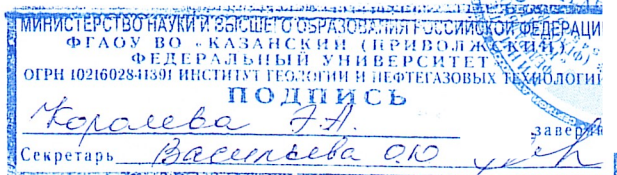 МИНИСТЕРСТВО НАУКИ И ВЫСШЕГО ОБРАЗОВАНИЯ РОССИЙСКОЙ ФЕДЕРАЦИИ
ФГАОУ ВО «КАЗАНСКИЙ (ПРИВОЛЖСКИЙ)
ФЕДЕРАЛЬНЫЙ УНИВЕРСИТЕТ
ОГРН 1021602841391 ИНСТИТУТ ГЕОЛОГИИ И НЕФТЕГАЗОВЫХ ТЕХНОЛОГИЙ
ПОДПИСЬ
Королева Э.А. заверяю
Секретарь Васильева О.Ю